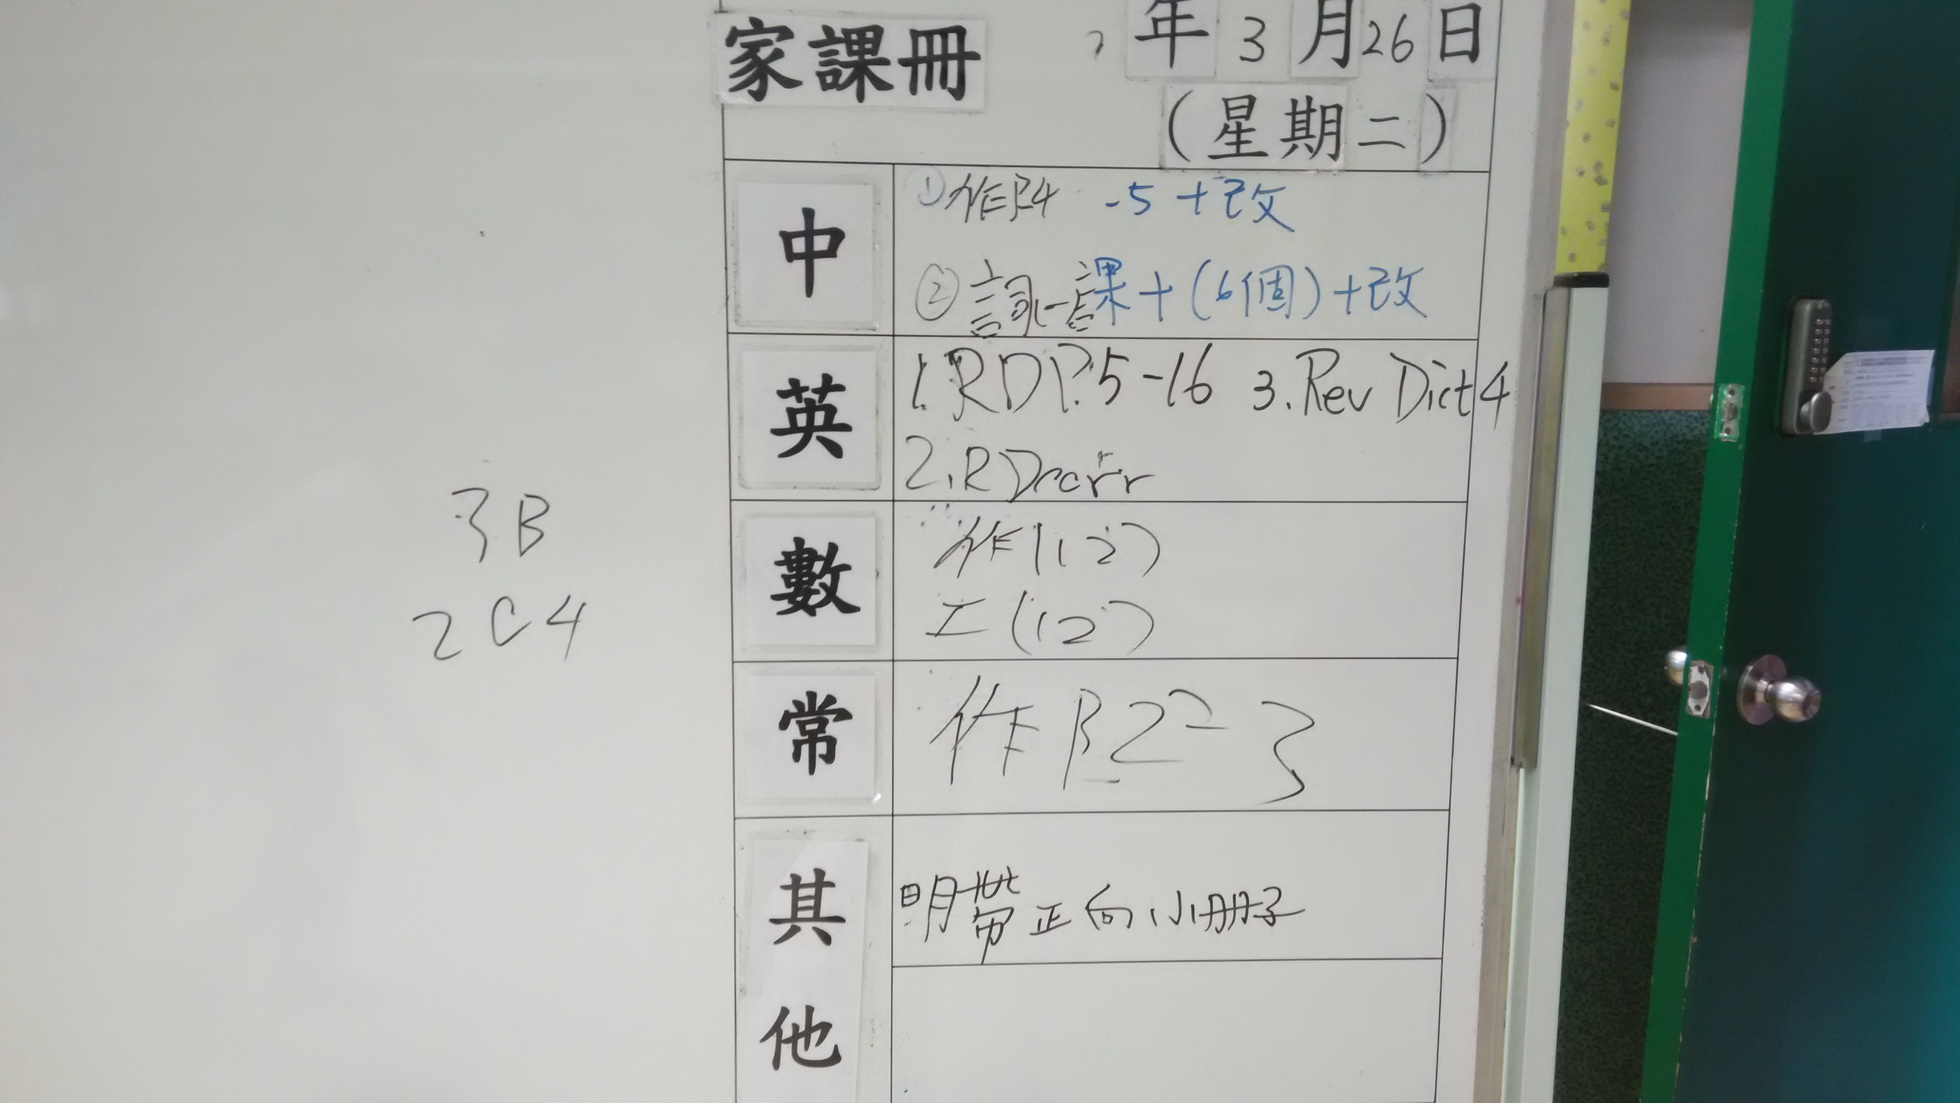 家課冊
年 3 月 26 日
(星期二)
中
① 作P.4 -5 +改
② 詞一課+(6個)+改
英
1. RD P.5-16 3. Rev Dict 4
2. RD
數
作(12)
工(12)
常
作P.22-3
其他
明帶正向小冊子
3B
2C4